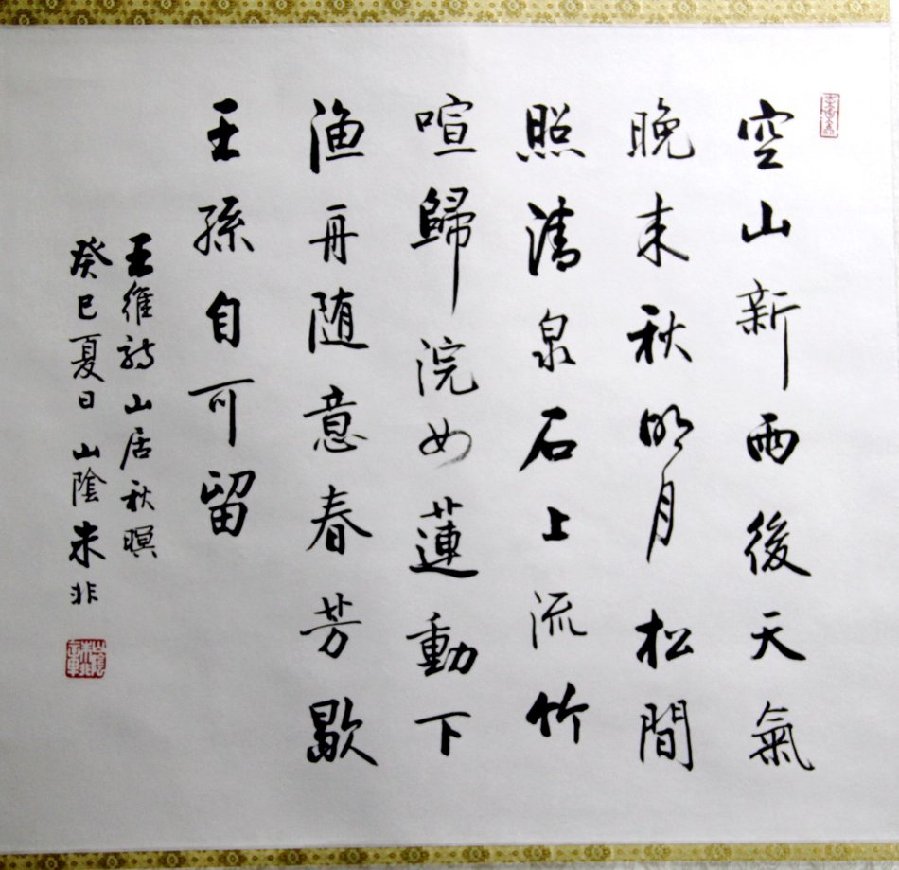 空山新雨後天氣
晚来秋明月松間
照清泉石上流竹
喧歸浣女蓮動下
渔舟随意春芳歇
王孫自可留
王維詩山居秋暝
癸巳夏日山陰朱非